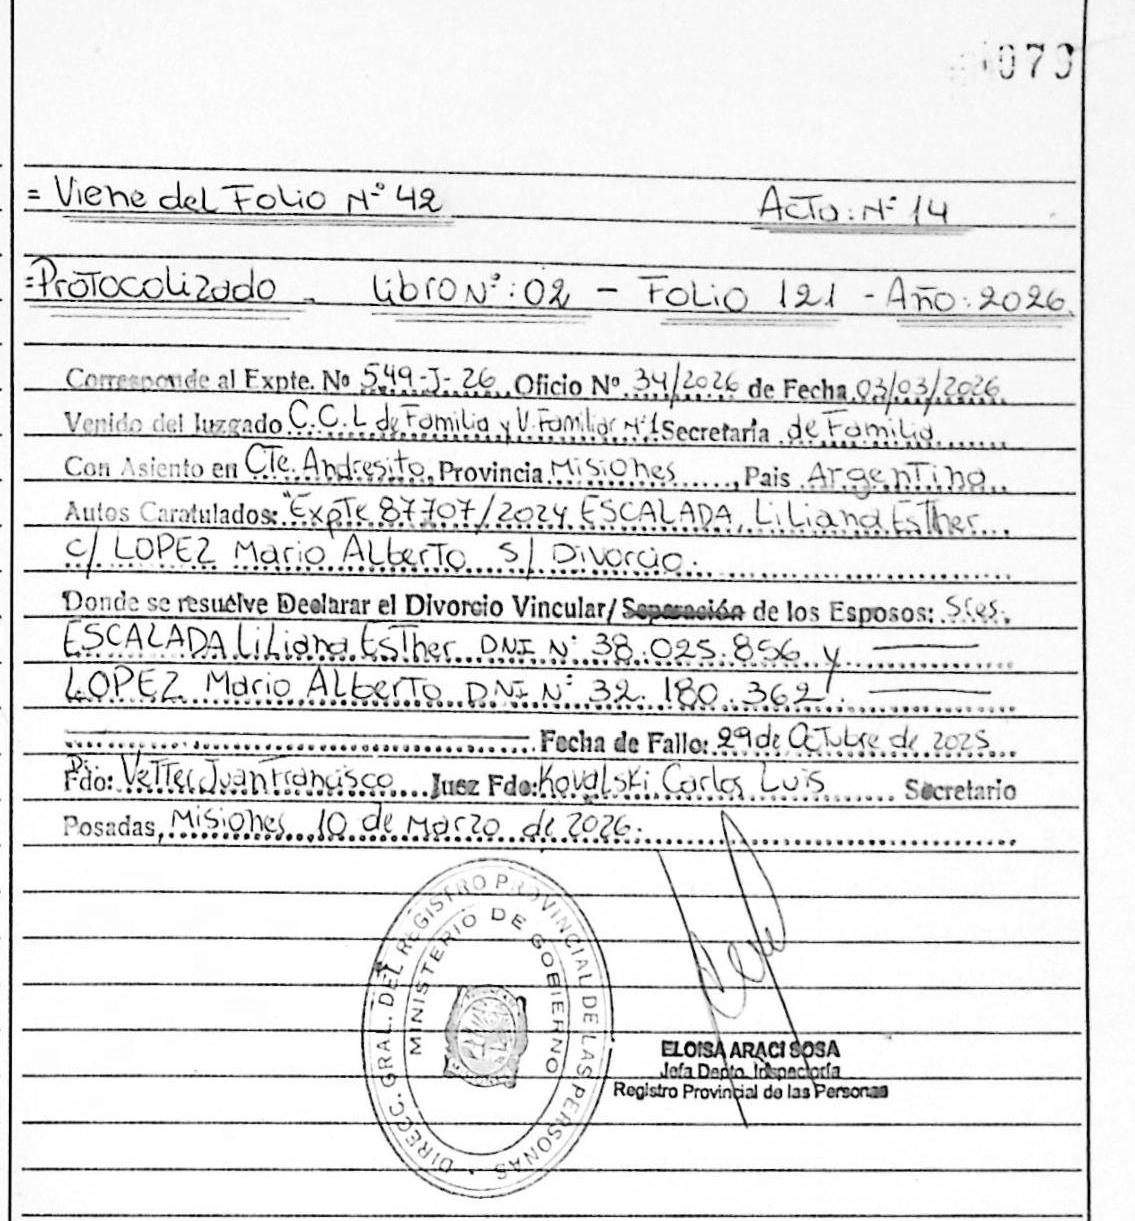 079
= Viene del Folio Nº 42 Acta: Nº 14
= Protocolizado - Libro Nº: 02 - Folio 121 - Año: 2026
Corresponde al Expte. No 549-J-26 Oficio Nº 34/2026 de Fecha 03/03/2026
Venido del Juzgado C.C.L de Familia y V. Familiar Nº1 Secretaria de Familia
Con Asiento en Cte. Andresito, Provincia Misiones, Pais Argentina
Autos Caratulados: "Expte 87707/2024 ESCALADA, Liliana Esther
c/ LOPEZ Mario Alberto s/ Divorcio.
Donde se resuelve Declarar el Divorcio Vincular/Separación de los Esposos: Sres.
ESCALADA Liliana Esther DNI Nº 38.025.856 y
LOPEZ Mario Alberto DNI Nº 32.180.362.
Fecha de Fallo: 29 de Octubre de 2025
Fdo: Dr. Vetter Juan Francisco Juez Fdo: Kovalski Carlos Luis Secretario
Posadas, Misiones 10 de Marzo de 2026.
DIRECC. GRAL. DEL REGISTRO PROVINCIAL DE LAS PERSONAS
MINISTERIO DE GOBIERNO
ELOISA ARACI SOSA
Jefa Depto. Inspectoria
Registro Provincial de las Personas